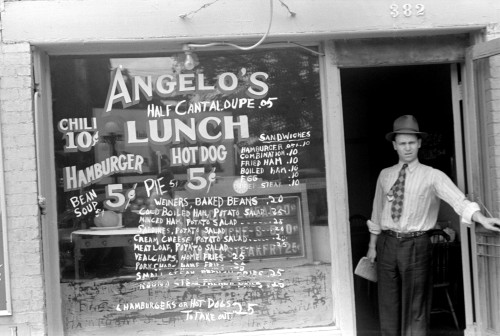 382
ANGELO'S
HALF CANTALOUPE .05
CHILI
10¢
LUNCH
HAMBURGER
5¢
HOT DOG
5¢
BEAN
SOUP 5
PIE 5
SANDWICHES
HAMBURGER
COMBINATION .10
FRIED HAM .10
BOILED HAM .10
EGG .10
STEAK .10
WEINERS, BAKED BEANS .20
COLD BOILED HAM, POTATO SALAD
MINCED HAM POTATO SALAD
SARDINES, POTATO SALAD
CREAM CHEESE, POTATO SALAD
MEAT LOAF, POTATO SALAD
VEAL CHOPS, HOME FRIES 25
PORK CHOP HOME FRIES 25
SMALL STEAK HOME FRIES 25
HAMBURGERS OR HOT DOGS
TO TAKE OUT 25